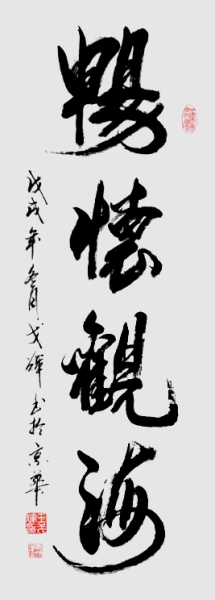 暢懷觀海
戊戌年冬月戈輝书於京華